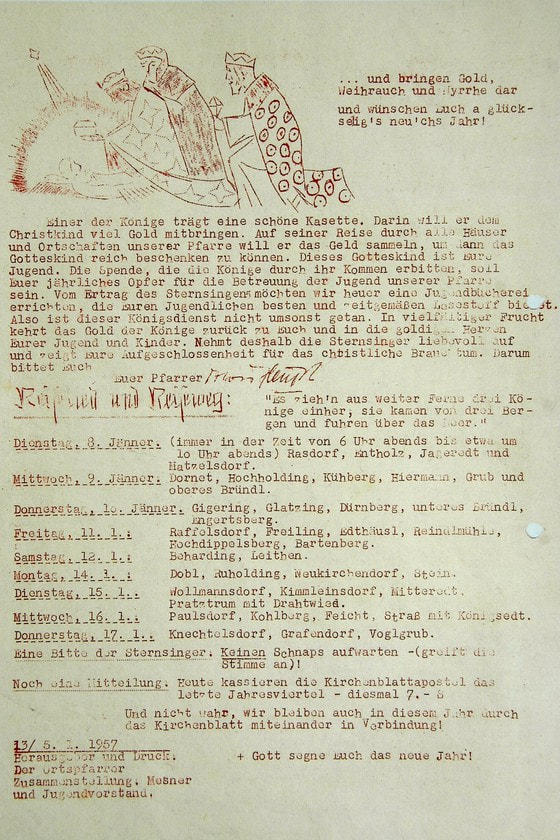 ... und bringen Gold,
Weihrauch und Myrrhe dar
und wünschen Euch a glück-
selig's neu'chs Jahr!
Einer der Könige trägt eine schöne Kasette. Darin will er dem
Christkind viel Gold mitbringen. Auf seiner Reise durch alle Häuser
und Ortschaften unserer Pfarre will er das Geld sammeln, um dann das
Gotteskind reich beschenken zu können. Dieses Gotteskind ist Eure
Jugend. Die Spende, die die Könige durch ihr Kommen erbitten, soll
Euer jährliches Opfer für die Betreuung der Jugend unserer Pfarre
sein. Vom Ertrag des Sternsingens möchten wir heuer eine Jugendbücherei
errichten, die Euren Jugendlichen besten und zeitgemäßen Lesestoff bietet.
Also ist dieser Königsdienst nicht umsonst getan. In vielfältiger Frucht
kehrt das Gold der Könige zurück zu Euch und in die goldigen Herzen
Eurer Jugend und Kinder. Nehmt deshalb die Sternsinger liebevoll auf
und zeigt Eure Aufgeschlossenheit für das chtistliche Brauchtum. Darum
bittet Euch
Euer Pfarrer
Reisezeit und Reiseweg:
"Es zieh'n aus weiter Ferne drei Kö-
nige einher; sie kamen von drei Ber-
gen und fuhren über das Meer."
Dienstag, 8. Jänner. (immer in der Zeit von 6 Uhr abends bis etwa um
1o Uhr abends) Rasdorf, Entholz, Jageredt und
Hatzelsdorf.
Mittwoch, 9. Jänner. Dornet, Hochholding, Kühberg, Hiermann, Grub und
oberes Bründl.
Donnerstag, 1o. Jänner. Gigering, Glatzing, Dürnberg, unteres Bründl,
Engertsberg.
Freitag, 11. 1.: Raffelsdorf, Freiling, Edthäusl, Reindlmühle,
Hochdippelsberg, Bartenberg.
Samstag, 12. 1.: Beharding, Leithen.
Montag, 14. 1.: Dobl, Ruholding, Neukirchendorf, Stein.
Dienstag, 15. 1.. Wollmannsdorf, Kimmleinsdorf, Mitteredt,
Pratztrum mit Drahtwied.
Mittwoch, 16. 1.: Paulsdorf, Kohlberg, Feicht, Straß mit Königsedt.
Donnerstag, 17. 1.. Knechtelsdorf, Grafendorf, Voglgrub.
Eine Bitte der Sternsinger. Keinen Schnaps aufwarten -(greift die
Stimme an)!
Noch eine Mitteilung. Heute kassieren die Kirchenblattapostel das
letzte Jahresviertel - diesmal 7.- S
Und nicht wahr, wir bleiben auch in diesem Jahr durch
das Kirchenblatt miteinander in Verbindung!
13/ 5. 1. 1957
Herausgeber und Druck. + Gott segne Euch das neue Jahr!
Der Ortspfarrer
Zusammenstellung. Mesner
und Jugendvorstand.